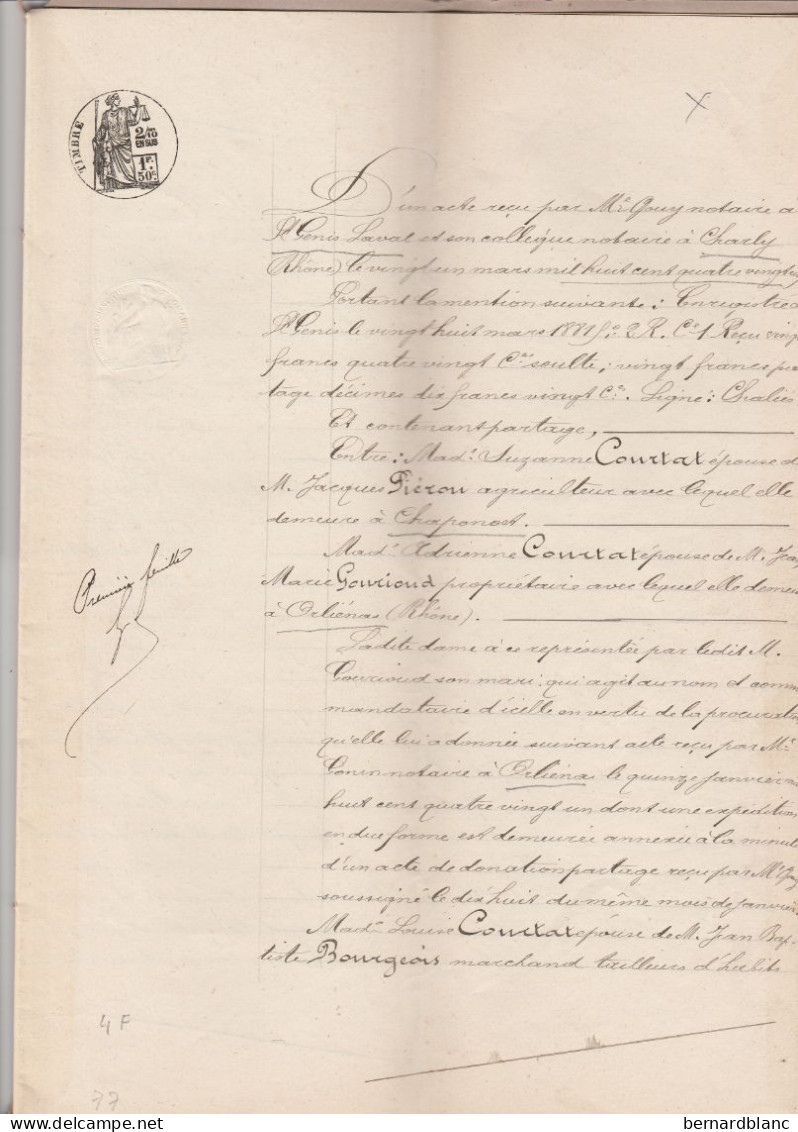 TIMBRE
2/10
EN SUS
1F.
50c.
X
D'un acte reçu par Me Gouy notaire a
St Genis Laval et son collègue notaire à Charly
Rhône) le vingt un mars mil huit cent quatre vingt
Portant la mention suivante : Enregistré
St Genis le vingt huit mars 1881 fo 2 R. Ce 1 Reçu vingt
francs quatre vingt Cmes soulte ; vingt francs
tage décimes dix francs vingt Cmes. Signé : Chaliès
Et contenant partage,
Entre : Made Suzanne Courtat épouse de
M. Jacques Piérou agriculteur avec lequel elle
demeure à Chaponost.
Made Adrienne Courtat épouse de M. Jean
Marie Gourioud propriétaire avec lequel elle demeure
à Orliénas (Rhône).
Ladite dame à ce représentée par ledit M.
Gourioud son mari : qui agit au nom et comme
mandataire d'icelle en vertu de la procuration
qu'elle lui a donnée suivant acte reçu par Me
Gonin notaire à Orliénas le quinze janvier
huit cent quatre vingt un dont une expédition
en due forme est demeurée annexée à la minute
d'un acte de donation partage reçu par Me Gouy
soussigné le dix huit du même mois de janvier.
Made Louise Courtat épouse de M. Jean Bap-
tiste Bourgeois marchand tailleurs d'habits
Première feuille
4 F
77
bernardblanc